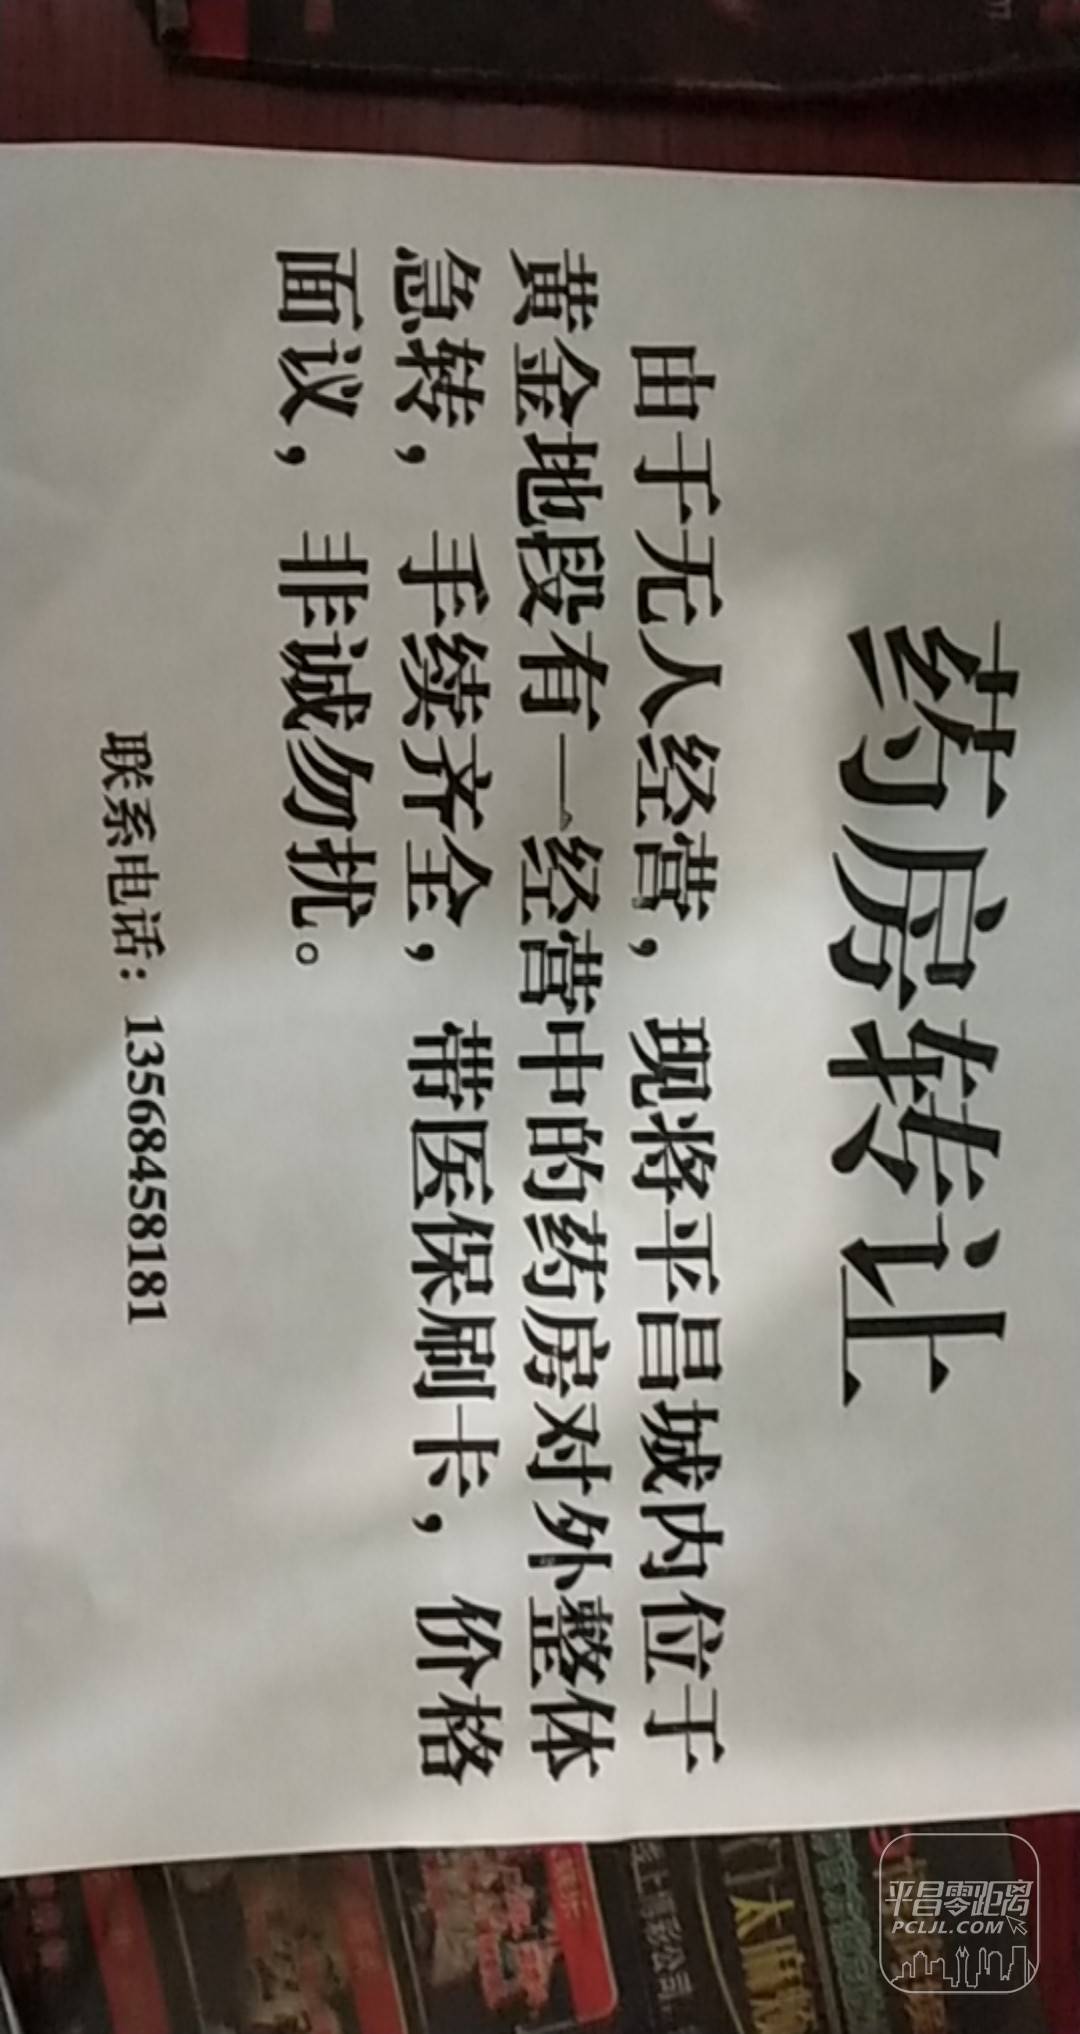 药房转让
由于无人经营，现将平昌城内位于
黄金地段有一经营中的药房对外整体
急转，手续齐全，带医保刷卡，价格
面议，非诚勿扰。
联系电话：13568458181
平昌零距离
PCLJL.COM